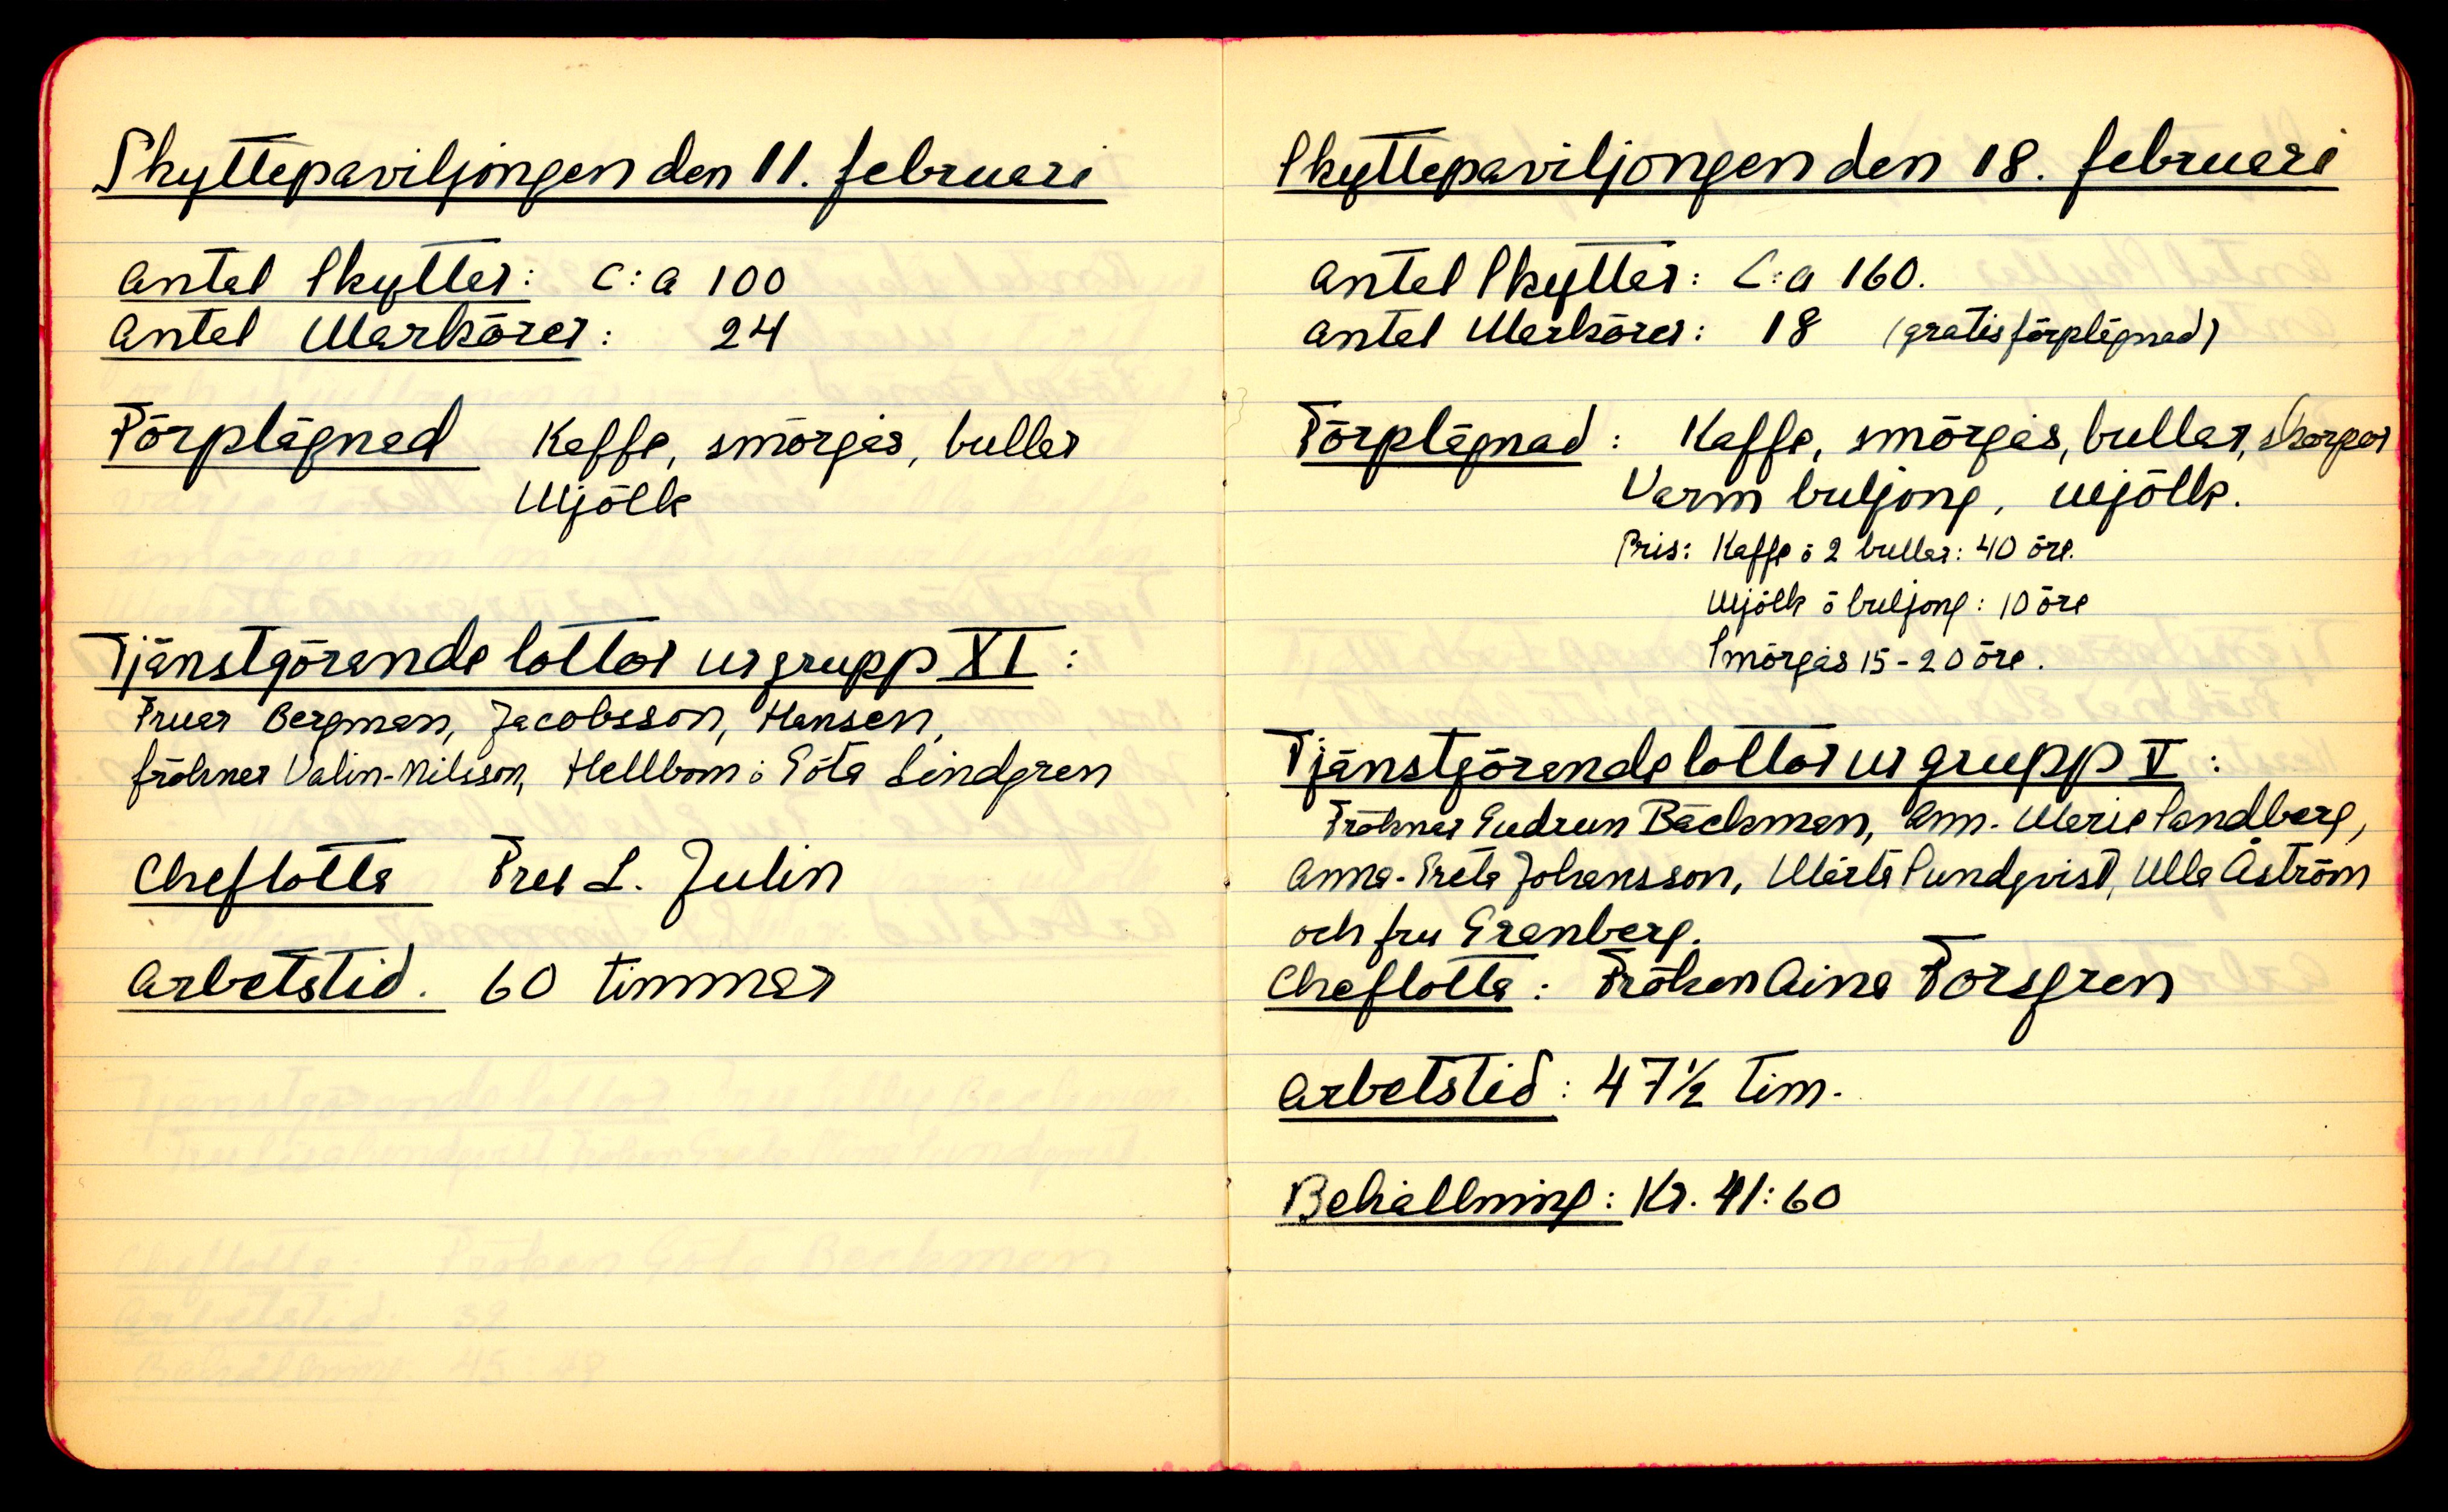 Skyttepaviljongen den 11. februari
Antal Skyttar: C:a 100
Antal Markörer: 24
Förplägnad Kaffe, smörgås, bullar
Mjölk
Tjänstgörande lottor ur grupp XI:
Fruar Bergman, Jacobsson, Hansen,
fröknar Valin-Nilsson, Hellbom o Göta Lindgren
Cheflotta Fru L. Julin
Arbetstid. 60 timmar
Skyttepaviljongen den 18. februari
Antal Skyttar: C:a 160.
Antal Markörer: 18 (gratis förplägnad)
Förplägnad: Kaffe, smörgås, bullar, skorpor
Varm buljong, mjölk.
Pris: Kaffe o 2 bullar: 40 öre.
Mjölk o buljong: 10 öre
Smörgås 15-20 öre.
Tjänstgörande lottor ur grupp V:
Fröknar Gudrun Bäckman, Ann-Marie Sandberg,
Anna-Greta Johansson, Märta Sundqvist, Ulla Åström
och fru Granberg.
Cheflotta: Fröken Aina Forsgren
Arbetstid: 47½ tim.
Behållning: Kr. 41:60